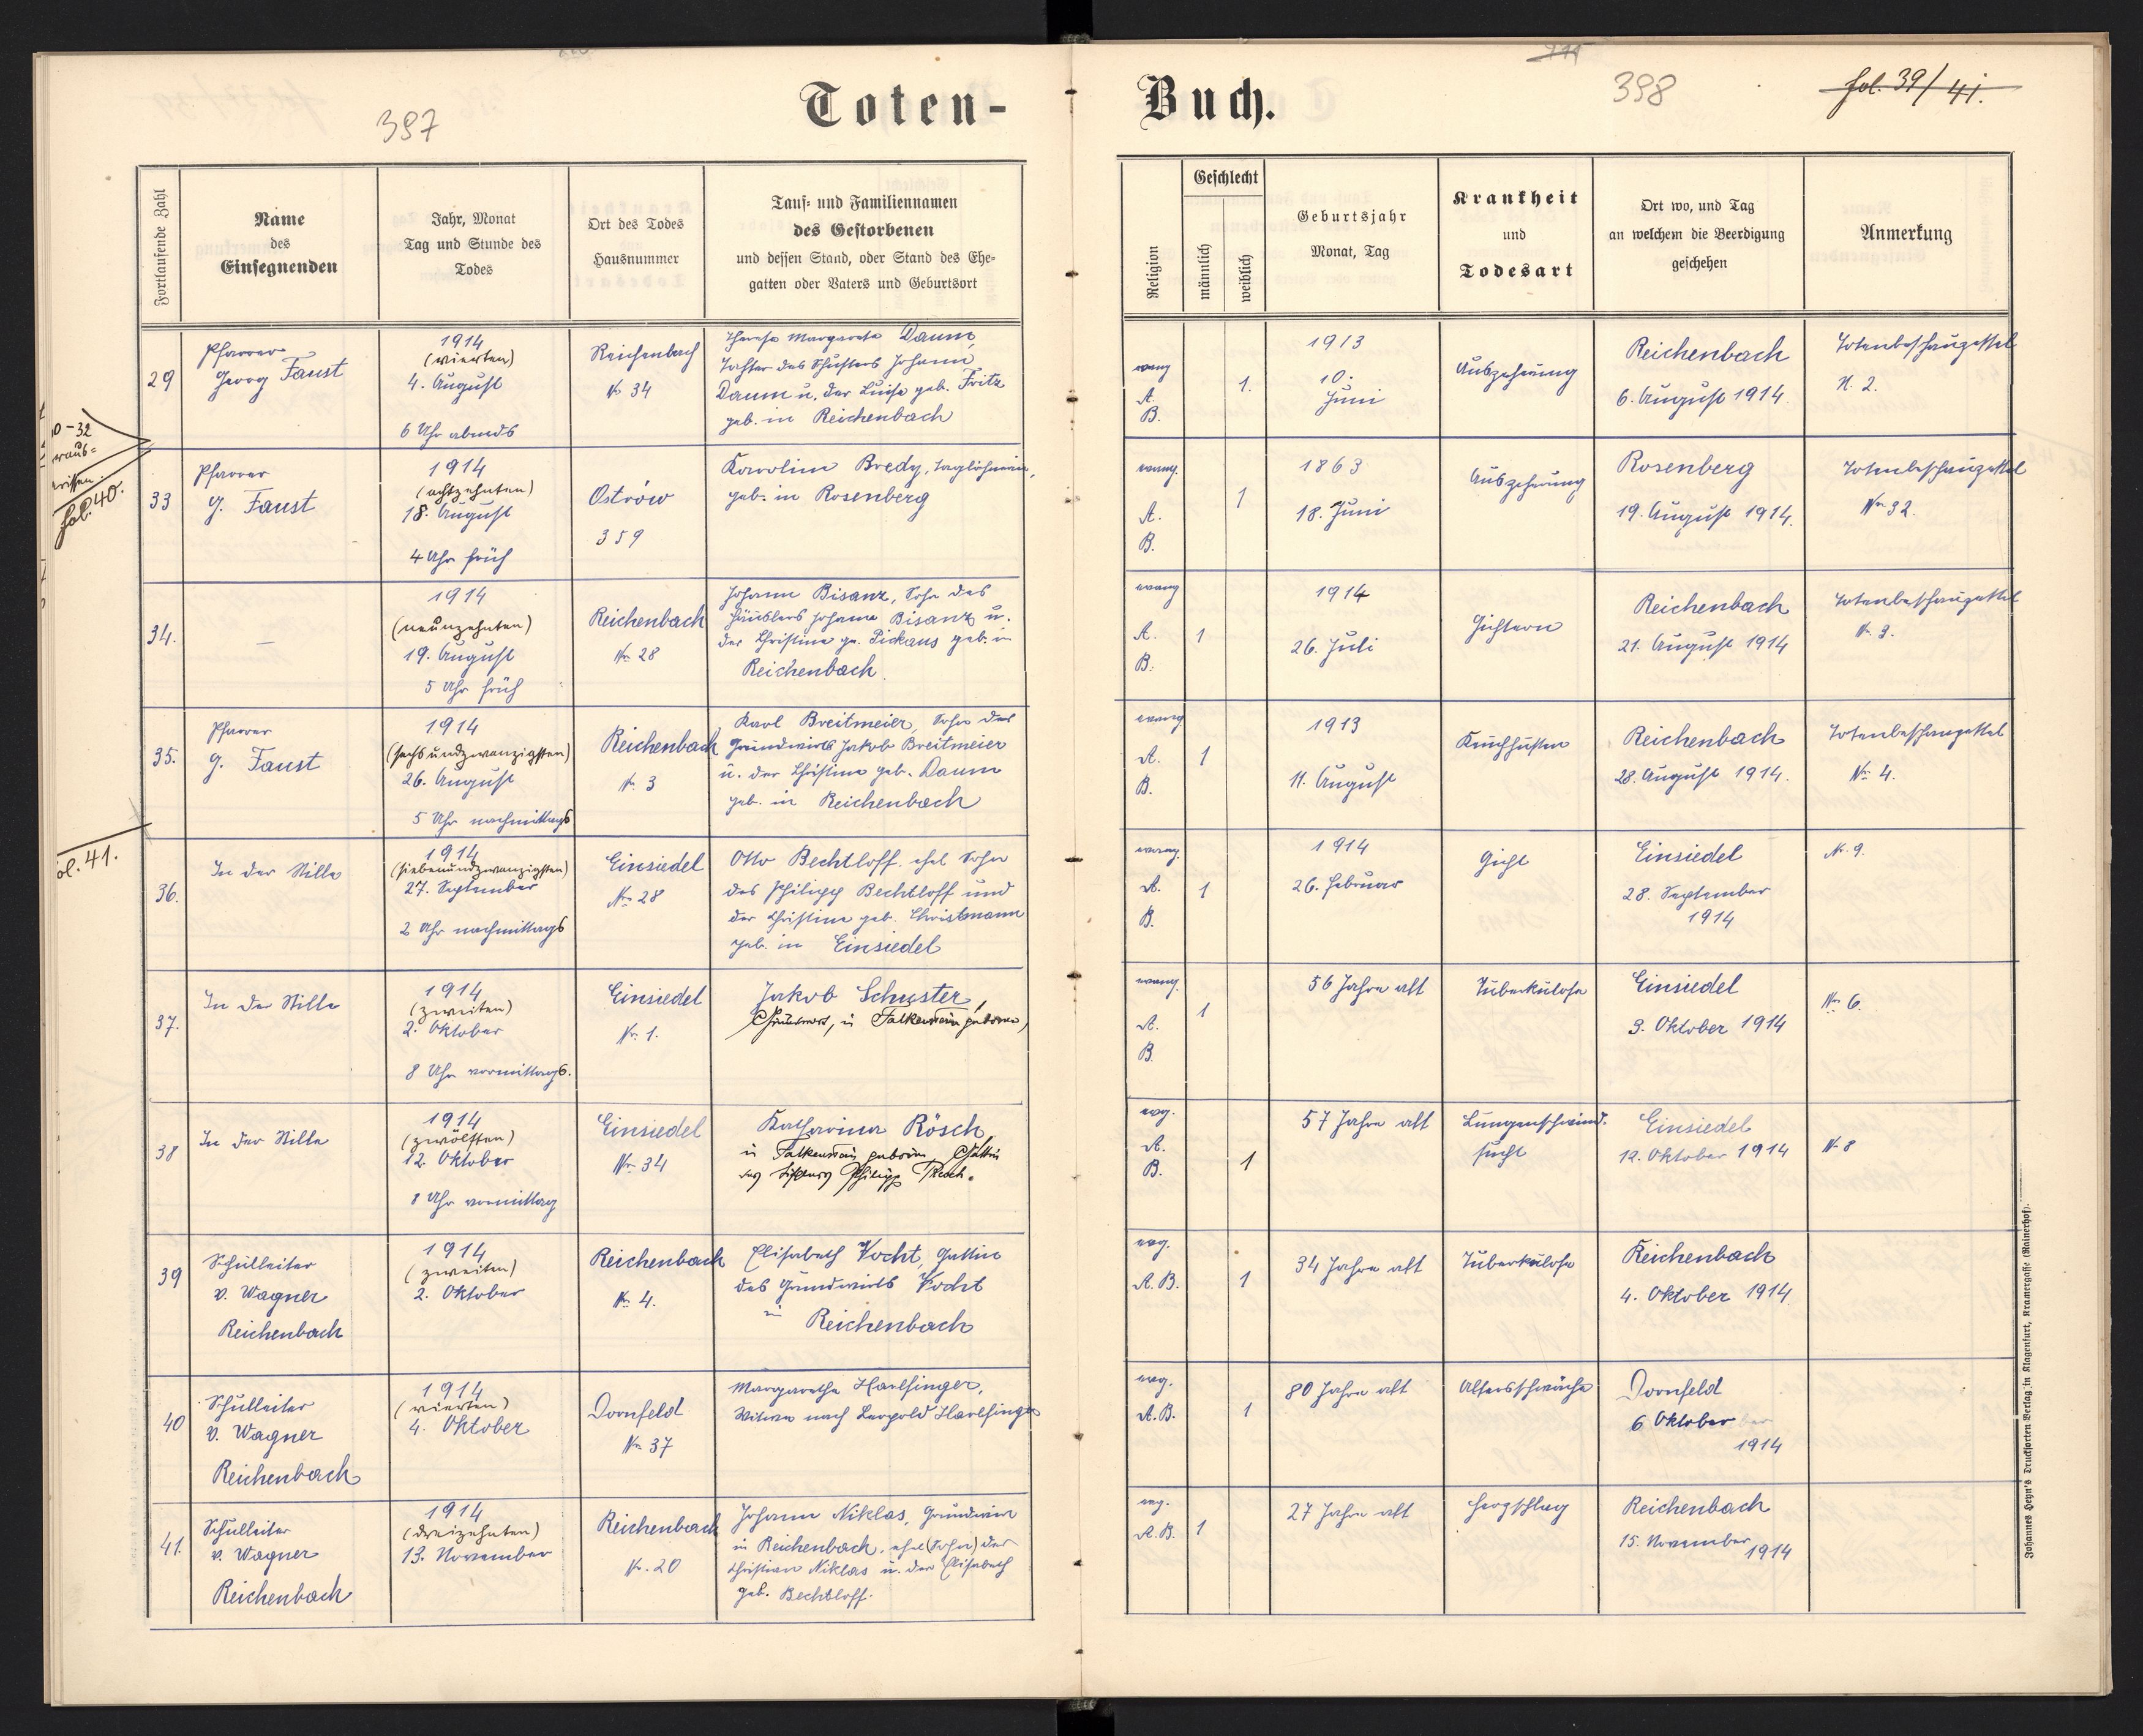 397
Toten-
Fortlaufende Zahl
Name
des
Einsegnenden
Jahr, Monat
Tag und Stunde des
Todes
Ort des Todes
Hausnummer
Tauf- und Familiennamen
des Gestorbenen
und dessen Stand, oder Stand des Ehe-
gatten oder Vaters und Geburtsort
29
Pfarrer
Georg Faust
1914
(vierten)
4. August
6 Uhr abends
Reichenbach
No 34
Theresa Margareta Daum,
Tochter des Schusters Johann
Daum u. der Luise geb. Fritz
geb. in Reichenbach
30-32
fol. 40.
33
Pfarrer
G. Faust
1914
(achtzehnten)
18. August
4 Uhr früh
Ostrów
359
Karoline Bredy, Taglöhnerin,
geb. in Rosenberg
34.
—
1914
(neunzehnten)
19. August
5 Uhr früh
Reichenbach
Nr. 28
Johann Bisanz, Sohn des
Häuslers Johann Bisanz u.
der Christine ge. Dickaus geb. in
Reichenbach.
35.
Pfarrer
G. Faust
1914
(sechsundzwanzigsten)
26. August
5 Uhr nachmittags
Reichenbach
Nr. 3
Karl Breitmeier, Sohn des
Grundwirts Jakob Breitmeier
u. der Christine geb. Daum
geb. in Reichenbach
fol. 41.
36.
In der Stille
1914
(siebenundzwanzigsten)
27. September
2 Uhr nachmittags
Einsiedel
Nr. 28
Otto Bechtloff, ehel Sohn
des Philipp Bechtloff und
der Christine geb. Christmann
geb. in Einsiedel
37.
In der Stille
1914
(zweiten)
2. Oktober
8 Uhr vormittags.
Einsiedel
Nr. 1.
Jakob Schuster,
Grundwirt, in Falkenstein geboren,
38
In der Stille
1914
(zwölften)
12. Oktober
1 Uhr vormittag
Einsiedel
Nr. 34
Katharina Rösch
in Falkenstein geboren, Gattin
des Philipp
39
Schulleiter
v. Wagner
Reichenbach
1914
(zweiten)
2. Oktober
Reichenbach
Nr. 4.
Elisabeth Vocht, Gattin
des Grundwirts Vocht
in Reichenbach
40
Schulleiter
v. Wagner
Reichenbach
1914
(vierten)
4. Oktober
Dornfeld
Nr. 37
Margarethe Harlfinger,
Witwe nach Leopold Harlfinger
41.
Schulleiter
v. Wagner
Reichenbach
1914
(dreizehnten)
13. November
Reichenbach
Nr. 20
Johann Niklas, Grundwirt
in Reichenbach, ehel (Sohn) des
Christian Niklas u. der Elisabeth
geb. Bechtloff.
Buch.
398
fol. 39/41.
Religion
Geschlecht
männlich
weiblich
Geburtsjahr
Monat, Tag
Krankheit
und
Todesart
Ort wo, und Tag
an welchem die Beerdigung
geschehen
Anmerkung
evang
A.
B.
1.
1913
10.
Juni
Auszehrung
Reichenbach
6. August 1914.
Totenbeschauzettel
N. 2.
evang.
A.
B.
1
1863
18. Juni
Auszehrung
Rosenberg
19. August 1914.
Totenbeschauzettel
Nr 32.
evang
A.
B.
1
1914
26. Juli
Gichtern
Reichenbach
21. August 1914
Totenbeschauzettel
Nr. 3.
evang
A.
B.
1
1913
11. August
Keuchhusten
Reichenbach
28. August 1914.
Totenbeschauzettel
Nr. 4.
evang.
A.
B.
1
1914
26. Februar
Gicht
Einsiedel
28. September
1914
Nr. 9.
evang.
A.
B.
1
56 Jahre alt
Tuberkulose
Einsiedel
3. Oktober 1914
Nr. 6.
evg.
A.
B.
1
57 Jahre alt
Lungenschwind-
sucht
Einsiedel
12. Oktober 1914
N. 8
evg.
A. B.
1
34 Jahre alt
Tuberkulose
Reichenbach
4. Oktober 1914.
evg.
A. B.
1
80 Jahre alt
Altersschwäche
Dornfeld
6 Oktober
1914
evg.
A. B.
1
27 Jahre alt
Herzschlag
Reichenbach
15. November
1914
Johannes Heyn's Drucksorten Verlag in Klagenfurt, Kramergasse (Rainerhof).